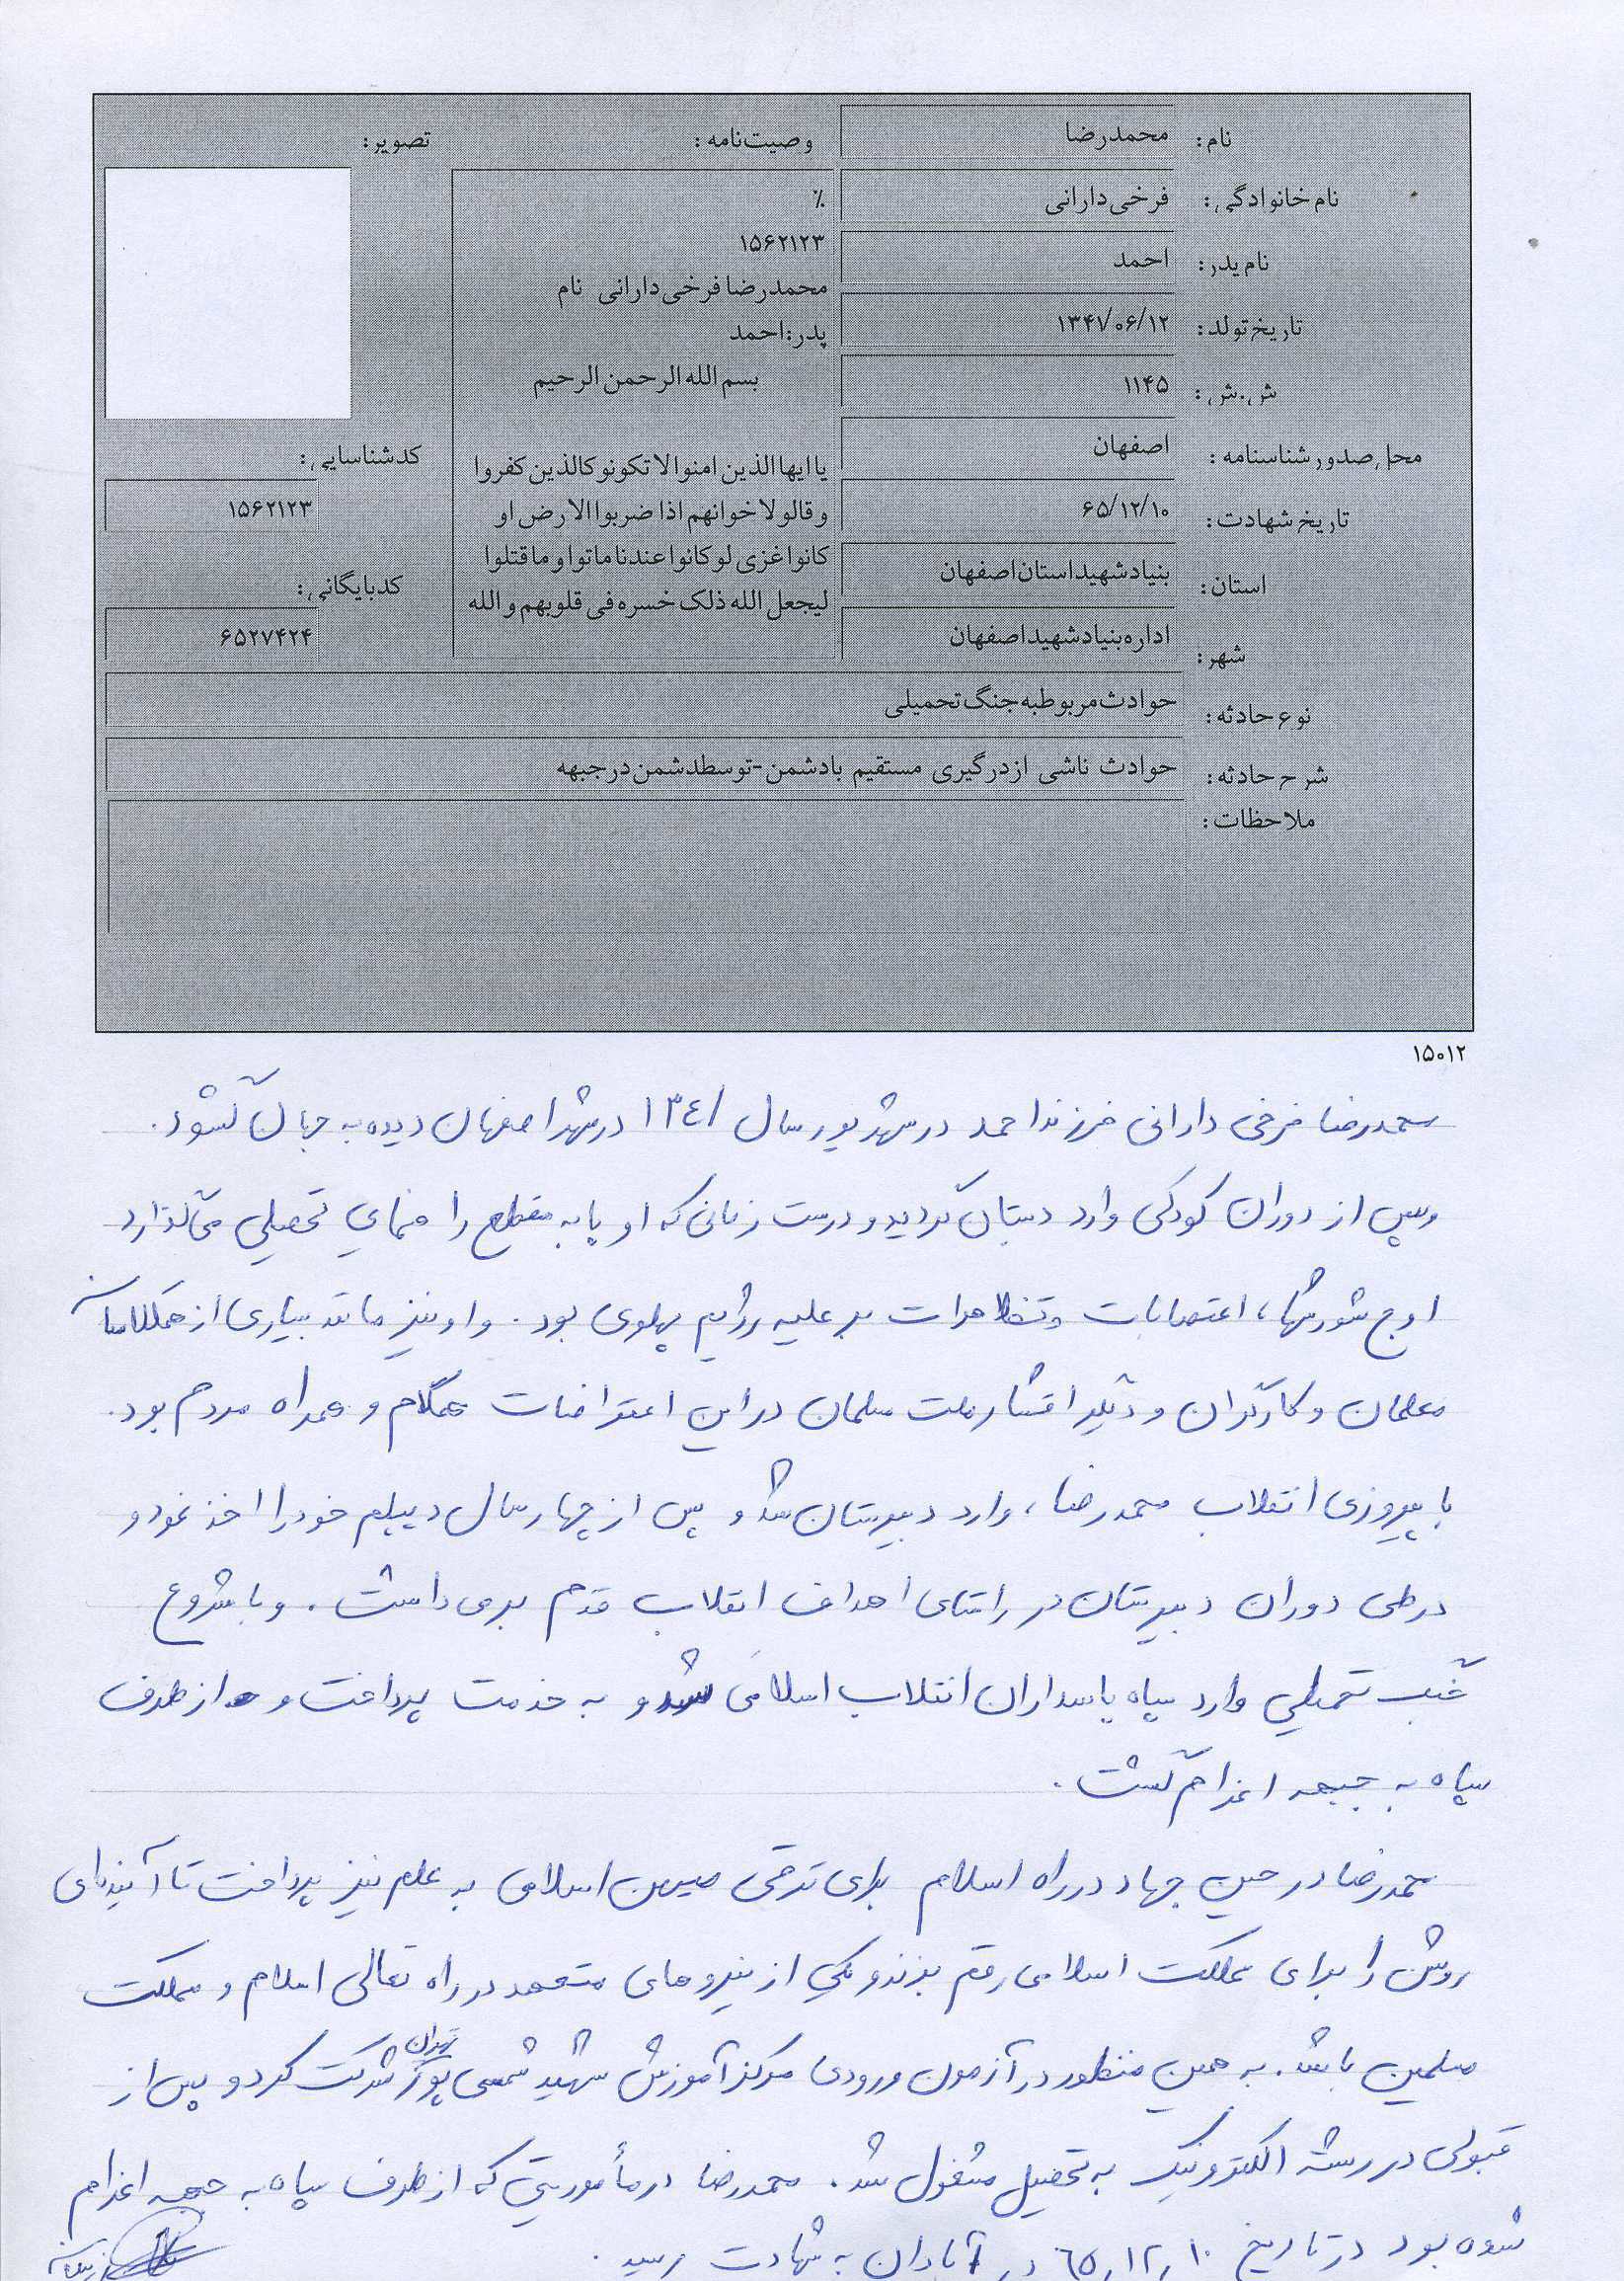 نام: محمدرضا
نام خانوادگی: فرخی دارانی
نام پدر: احمد
تاریخ تولد: ۱۳۴۱/۰۶/۱۲
ش.ش: ۱۱۴۵
محل صدور شناسنامه: اصفهان
تاریخ شهادت: ۶۵/۱۲/۱۰
استان: بنیاد شهید استان اصفهان
شهر: اداره بنیاد شهید اصفهان
وصیت نامه:
٪
۱۵۶۲۱۲۳
محمدرضا فرخی دارانی نام
پدر: احمد
بسم الله الرحمن الرحیم
یا ایها الذین امنوا لا تکونو کالذین کفروا
و قالو لاخوانهم اذا ضربوا الارض او
کانوا غزی لو کانوا عندنا ماتوا و ما قتلوا
لیجعل الله ذلک خسره فی قلوبهم و الله
تصویر:
کد شناسایی:
۱۵۶۲۱۲۳
کد بایگانی:
۶۵۲۷۴۲۴
نوع حادثه: حوادث مربوط به جنگ تحمیلی
شرح حادثه: حوادث ناشی از درگیری مستقیم با دشمن-توسط دشمن در جبهه
ملاحظات:
۱۵۰۱۲
محمدرضا فرخی دارانی فرزند احمد در شهریور سال ۱۳۴۱ در شهر اصفهان دیده به جهان گشود.
و پس از دوران کودکی وارد دبستان گردید و درست زمانی که او پا به مقطع راهنمایی تحصیلی می‌گذارد
اوج شورشها، اعتصابات و تظاهرات بر علیه رژیم پهلوی بود. و او نیز مانند بسیاری از همکلاسان
معلمان و کارگران و دیگر اقشار ملت مسلمان در این اعتراضات همگام و همراه مردم بود.
با پیروزی انقلاب محمدرضا، وارد دبیرستان شد و پس از چهار سال دیپلم خود را اخذ نمود و
در طی دوران دبیرستان در راستای اهداف انقلاب قدم برمی داشت. و با شروع
جنگ تحمیلی وارد سپاه پاسداران انقلاب اسلامی شد و به خدمت پرداخت و از طرف
سپاه به جبهه اعزام گشت.
محمدرضا در حین جهاد در راه اسلام برای ترقی میهن اسلامی به علم نیز پرداخت تا آینده‌ای
روشن را برای مملکت اسلامی رقم بزند و یکی از نیروهای متعهد در راه تعالی اسلام و مملکت
مسلمین باشد. به همین منظور در آزمون ورودی مرکز آموزش شهید شمسی پور تهران شرکت کرد و پس از
قبولی در رشته الکترونیک به تحصیل مشغول شد. محمدرضا در مأموریتی که از طرف سپاه به جبهه اعزام
شده بود در تاریخ ۶۵/۱۲/۱۰ در آبادان به شهادت رسید.